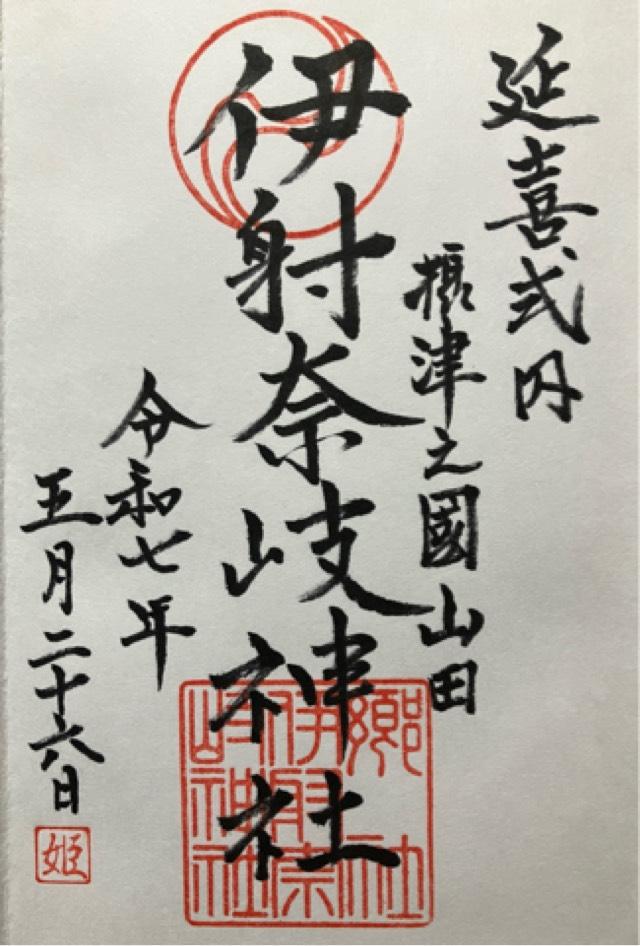 延喜式内
摂津之國山田
伊射奈岐神社
令和七年
五月二十六日
姫
郷社
伊射奈
岐神社